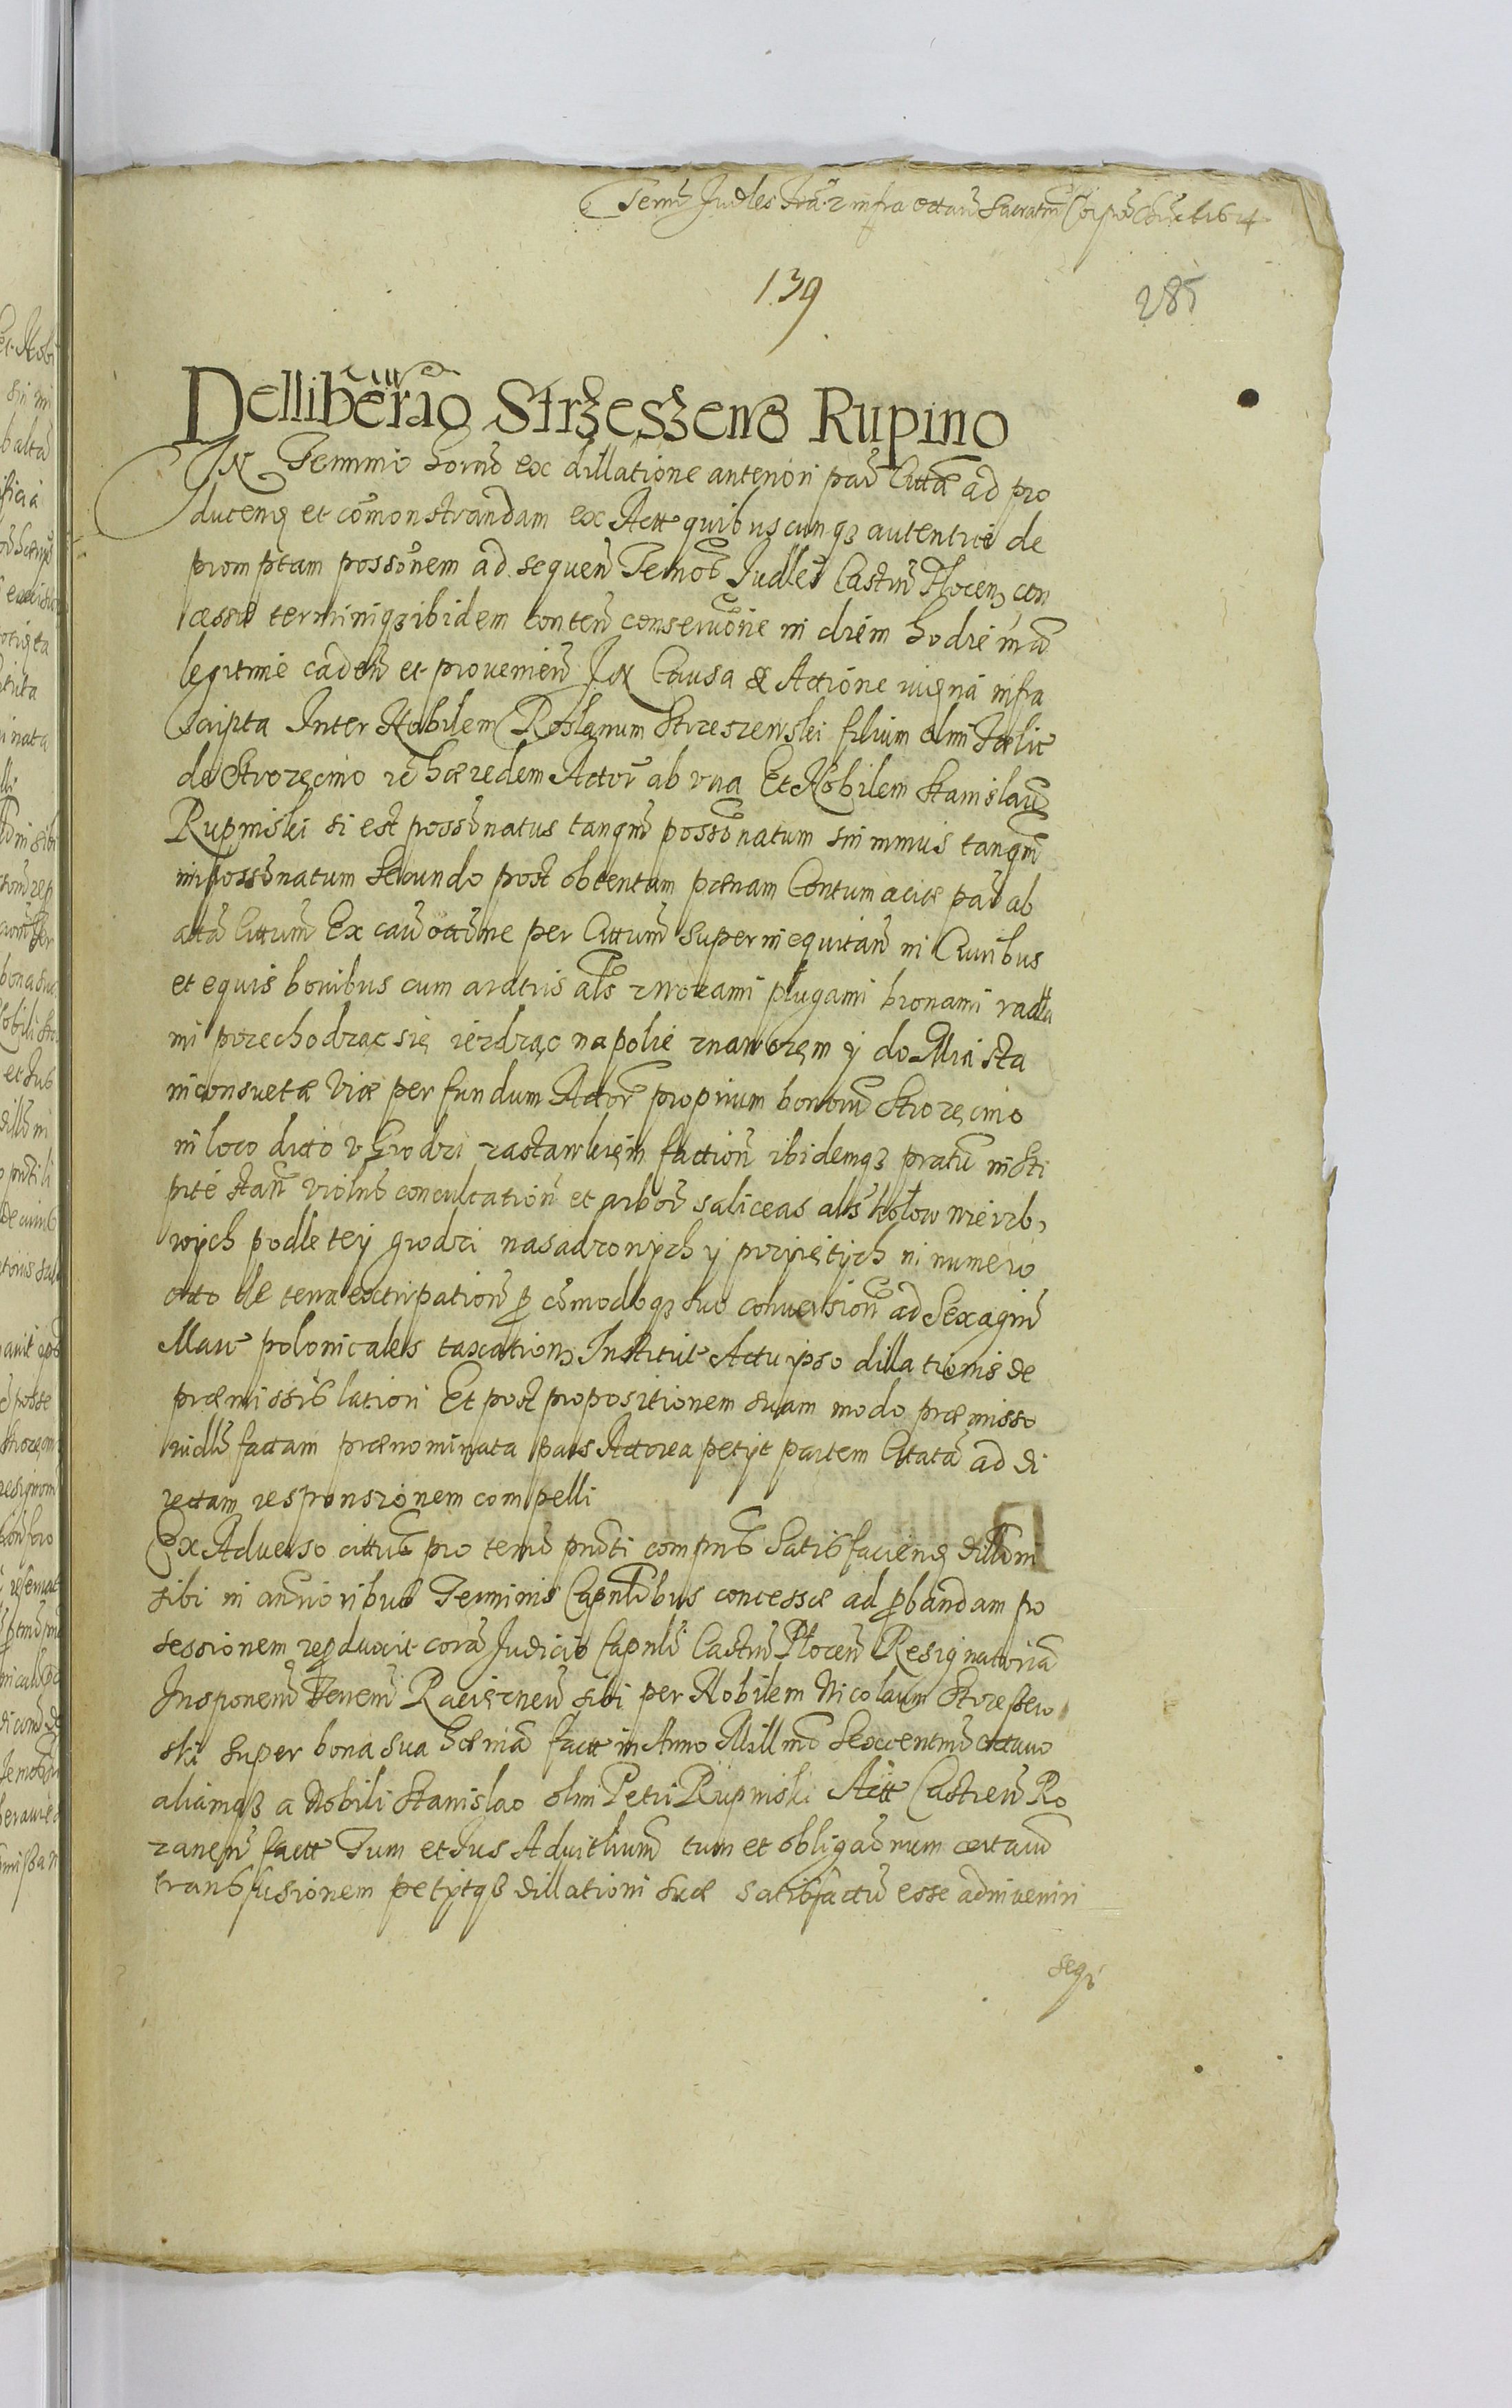 Termi Judles fra 2 infra octav Sacratmi Corporis Chri 1614
139
285
Dellibērao Strzeszews Rupino
IN Termino hoīno ex dillatione anteriori par Cittæ ad pro
ducens et cōmonstrandam ex Actt quibuscunqȝ autentice de
promptam possōnem ad sequen Termōs Judlēs Castrn Plocen con
cessæ terminiqȝ ibidem conten conservōne in diem hodiernā
legitime caden et provenien IN Causa & Actione videna infra
scripta Inter Nobilem Roslanum Strzeszewski filium olim Fælic
de Strozęcino ie hæredem Actor ab vna Et Nobilem Stanislaū
Rupinski si est possōnatus tanqm possōnatum sin minus tanqm
impossōnatum Secundo post obtentam pænam Contumaciæ par ab
acta Cittum Ex cau occōne per Cittum superinequitan in Curribus
et equis bovibus cum aratris als zwozami plugami bronami radla
mi przechodzac się iezdząc na polie znawozęm y do Miasta
inconsuetæ Viæ per fundum Actor proprium bonorū Strozęcino
in loco dicto v Grodzi zastawkięm faction ibidemqȝ pratū in sti
pite stan violn conculcation et arbor saliceas als kołow wierzb
wych podle tey grodzi nasadzonych y przyiętych in numero
octo de terra extirpation p cōmodoqȝ suo conversion ad Sexagin
Marc polonicales taxation Institut Actu ipso dillationis de
præmissis latiori Et post propositionem suam modo præmisso
iudle factam prænominata pars Actorea petyt partem Citatā ad di
rectam responsionem compelli
Ex Adverso cittus pro termō pnti compns Satisfaciens dillōni
sibi in anterioribus Terminis Capnlibus concessæ ad pbandam po
sessionem reproduxit corā Judicio Capnli Castrn Plocen Resignatoriā
Insponem Terrem Raciąznen sibi per Nobilem Nicolaum Strzeszew
ski super bona sua hærnia factt in Anno Millmo Sexcentmo octavo
aliamqȝ a Nobili Stanislao olim Petri Rupinski Actt Castren Ro
zanen factt Tum et Jus Aduitlium tum et obligaōnum certaru
transfusionem petytqȝ dillationi suæ satisfactū esse adinveniri
seqr